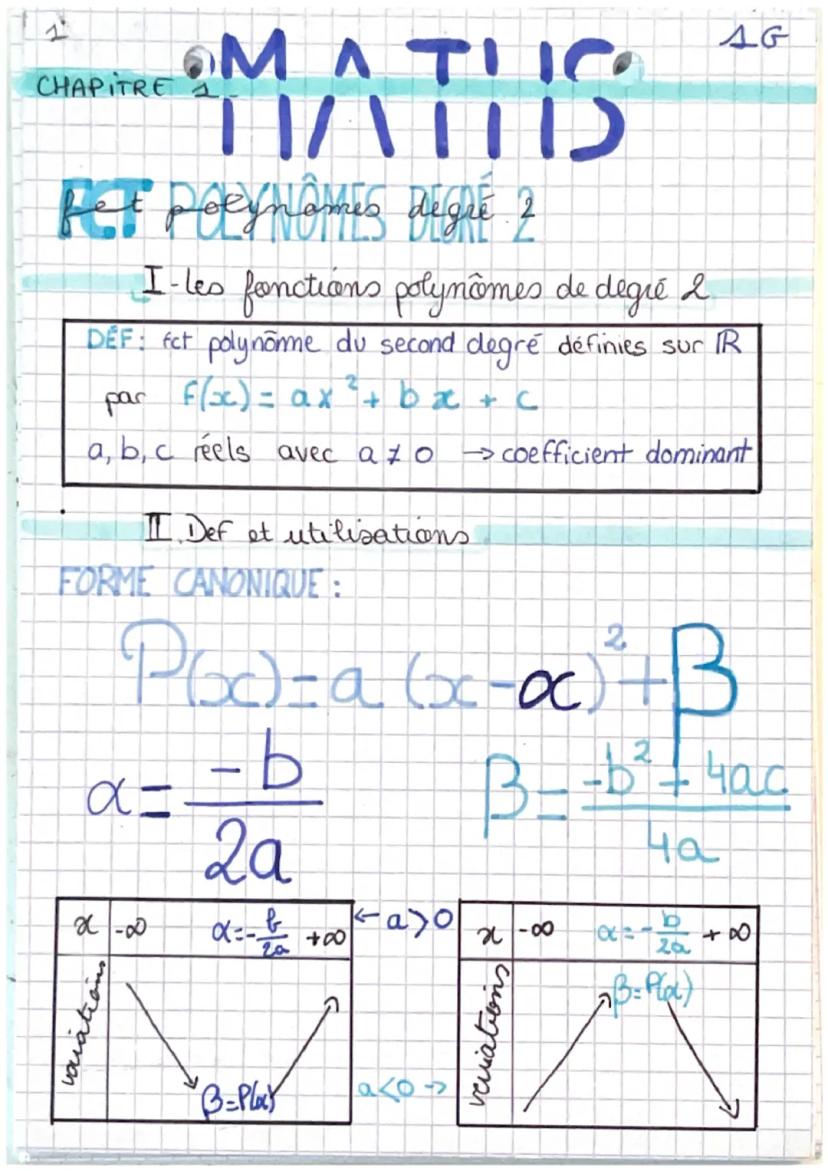 1
1G
MATHS
CHAPITRE 1
fct polynômes degré 2
FCT POLYNÔMES DEGRÉ 2
I - Les fonctions polynômes de degré 2
DÉF : fct polynôme du second degré définies sur ℝ
par f(x) = ax² + bx + c
a, b, c réels avec a ≠ 0 → coefficient dominant
II. Def et utilisations
FORME CANONIQUE :
P(x) = a (x - α)² + β
α = -b / 2a
β = -b² + 4ac / 4a
x -∞ α = -b/2a +∞
variations
β = P(α)
← a > 0
a < 0 →
x -∞ α = -b/2a +∞
variations
β = P(α)